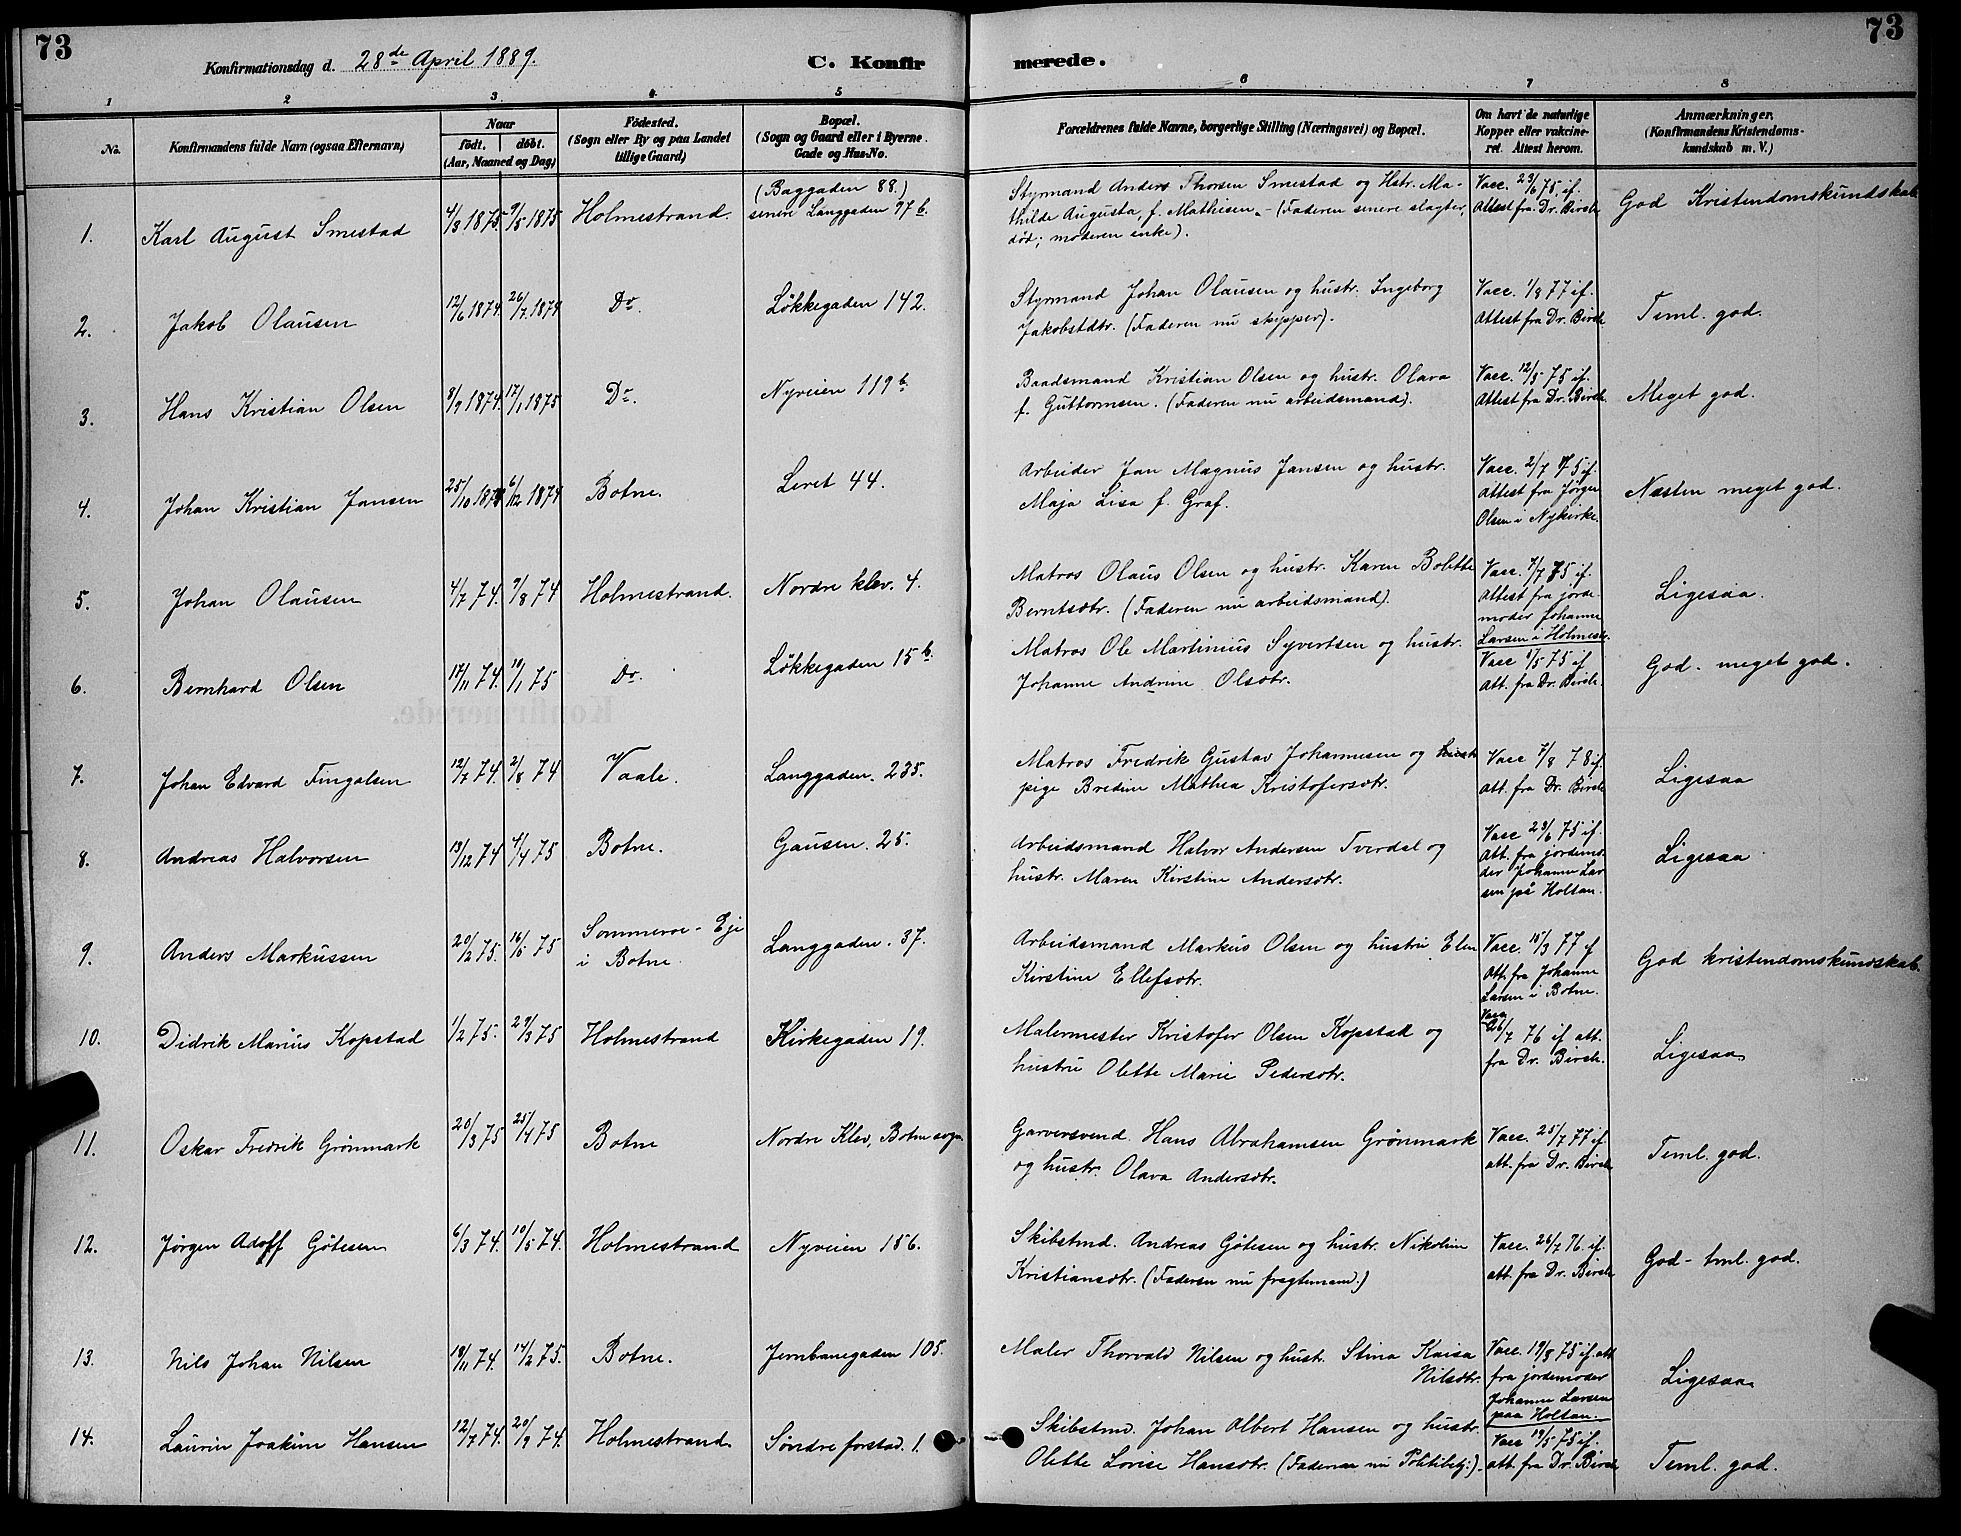 73
Konfirmationsdag d. 28de April 1889.
C. Konfirmerede.
73
1 2 3 4 5 6 7 8
No.
Konfirmandens fulde Navn (ogsaa Efternavn)
Naar
födt. döbt.
(Aar, Maaned og Dag)
Födested.
(Sogn eller By og paa Landet
tillige Gaard)
Bopæl.
(Sogn og Gaard eller i Byerne
Gade og Hus-No.
Forældrenes fulde Navne, borgerlige Stilling (Næringsvei) og Bopæl.
Om havt de naturlige
Kopper eller vakcine-
ret. Attest herom.
Anmærkninger.
(Konfirmandens Kristendoms-
kundskab m. V.)
1. Karl August Smestad 4/3 1875. 9/5 1875 Holmestrand.
(Baggaden 88.)
senere Langgaden 97 b.
Styrmand Anders Thorsen Smestad og Hstr. Ma-
thilde Augusta, f. Mathisen. - (Faderen senere slagter,
död; moderen enke).
Vacc. 23/6 75, if.
Attest fra Dr. Birch
God Kristendomskundskab
2. Jakob Olausen 12/6 1874. 26/7 1874 Do. Løkkegaden 142.
Styrmand Johan Olausen og hustr. Ingeborg
Jakobsdtr. (Faderen nu skipper).
Vacc. 1/8 77 if.
Attest fra Dr. Birch
Teml. god.
3. Hans Kristian Olsen 8/9 1874. 17/1 1875 Do. Nyveien 119 b.
Baadsmand Kristian Olsen og hustr. Olava
f. Guttormsen. (Faderen nu arbeidsmand).
Vacc. 12/5 75 if.
Attest fra Dr. Birch
Meget god.
4. Johan Kristian Jansen 25/10 1874 6/12 1874 Botne. Leret 44.
Arbeider Jan Magnus Jansen og hustr.
Maja Lisa f. Graf.
Vacc. 2/7 75 if.
Attest fra Jørgen
Olsen i Nykirke.
Næsten meget god.
5. Johan Olausen 4/7 74. 9/8 74 Holmestrand. Nordre klev. 4.
Matros Olaus Olsen og hustr. Karen Bolette
Berntsdtr. (Faderen nu arbeidsmand).
Vacc. 7/7 75 if.
Attest fra jorde-
moder Johanne
Larsen i Holmestr.
Ligesaa.
6. Bernhard Olsen 17/11 74. 19/1 75 Do. Løkkegaden 15 b.
Matros Ole Martinius Syvertsen og hustr.
Johanne Andrine Olsdtr.
Vacc 1/5 75 if
Att. fra Dr. Birch.
God - meget god.
7. Johan Edvard Fingalsen 12/7 74. 2/8 74 Vaale. Langgaden. 235.
Matros Fredrik Gustav Johannesen og
pige Bredine Mathea Kristofersdtr.
Vacc 7/8 78 if.
att. fra Dr. Birch
Ligesaa
8. Andreas Halvorsen 19/12 74 4/4 75 Botne. Gausen. 25.
Arbeidsmand Halvor Andersen Tverdal og
hustr. Maren Kirstine Andersdtr.
Vacc 23/6 75 if.
Att. fra jordemo-
der Johanne Lar
sen på Holtan.
Ligesaa
9. Anders Markussen 20/2 75. 16/5 75
Sommeroe - Eje
i Botne.
Langgaden. 37.
Arbeidsmand Markus Olsen og hustru Elen
Kirstine Ellefsdtr.
Vacc. 15/3 77 if
Att. fra Johanne
Larsen i Botne.
God kristendomskundskab.
10. Didrik Marius Kopstad 1/2 75. 29/3 75 Holmestrand Kirkegaden 19.
Malermester Kristofer Olsen Kopstad og
hustru Olette Marie Pedersdtr.
Vacc
26/7 76 if att.
fra Dr. Birch.
Ligesaa
11. Oskar Fredrik Grönmark 20/3 75 25/4 75 Botne Nordre Klev, Botne sogn
Garversvend. Hans Abrahamsen Grönmark
og hustr. Olava Andersdtr.
Vacc. 25/7 77 if
att. fra Dr. Birch
Teml. god.
12. Jørgen Adoff Götesen 6/3 74. 10/5 74. Holmestrand Nyveien 156.
Skibstmd. Andreas Götesen og hustr. Nikoline
Kristiansdtr. (Faderen nu fragtemand.)
Vacc. 26/7 76. if.
att. fra Dr. Birch
God - tml. god.
13. Nils Johan Nilsen 19/11 74. 14/2 75. Botne. Jernbanegaden 105.
Maler Thorvald Nilsen og hustr. Stina Kaisa
Nilsdtr.
Vacc. 19/8 75 if. att
fra jordemoder
Johanne Larsen
paa Holtan.
Ligesaa
14. Laurin Joakim Hansen 12/7 74. 20/9 74. Holmestrand. Søndre forstad. 1.
Skibstmd. Johan Albert Hansen og hustr.
Olette Lovise Hansdtr. (Faderen nu Politibtj.).
Vacc 19/5 75 if.
att. fra Dr. Birch
Teml. god.